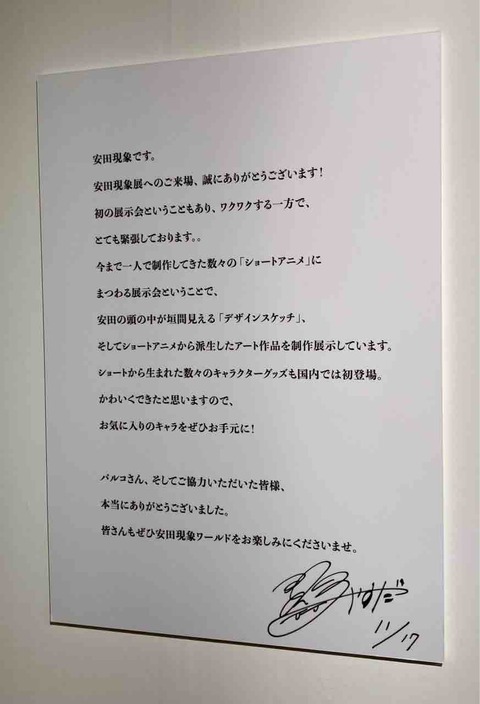 安田現象です。
安田現象展へのご来場、誠にありがとうございます！
初の展示会ということもあり、ワクワクする一方で、
とても緊張しております。。
今まで一人で制作してきた数々の「ショートアニメ」に
まつわる展示会ということで、
安田の頭の中が垣間見える「デザインスケッチ」、
そしてショートアニメから派生したアート作品を制作展示しています。
ショートから生まれた数々のキャラクターグッズも国内では初登場。
かわいくできたと思いますので、
お気に入りのキャラをぜひお手元に！
パルコさん、そしてご協力いただいた皆様、
本当にありがとうございました。
皆さんもぜひ安田現象ワールドをお楽しみにくださいませ。
やすだ
11/17